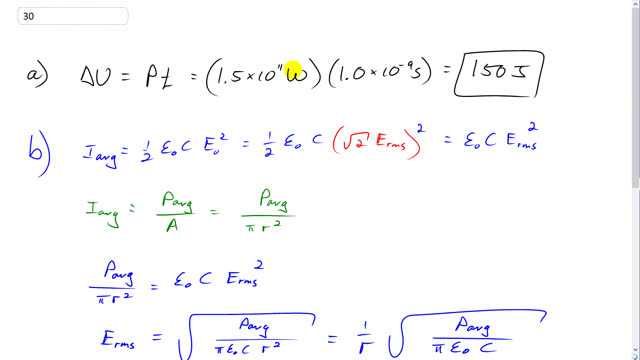 30
a) ΔU = Pt = (1.5 × 10¹¹ W)(1.0 × 10⁻⁹ s) = 150 J
b) I_avg = 1/2 ε₀ C E₀² = 1/2 ε₀ C (√2 E_rms)² = ε₀ C E_rms²
I_avg = P_avg / A = P_avg / π r²
P_avg / π r² = ε₀ C E_rms²
E_rms = √(P_avg / π ε₀ C r²) = 1/r √(P_avg / π ε₀ C)